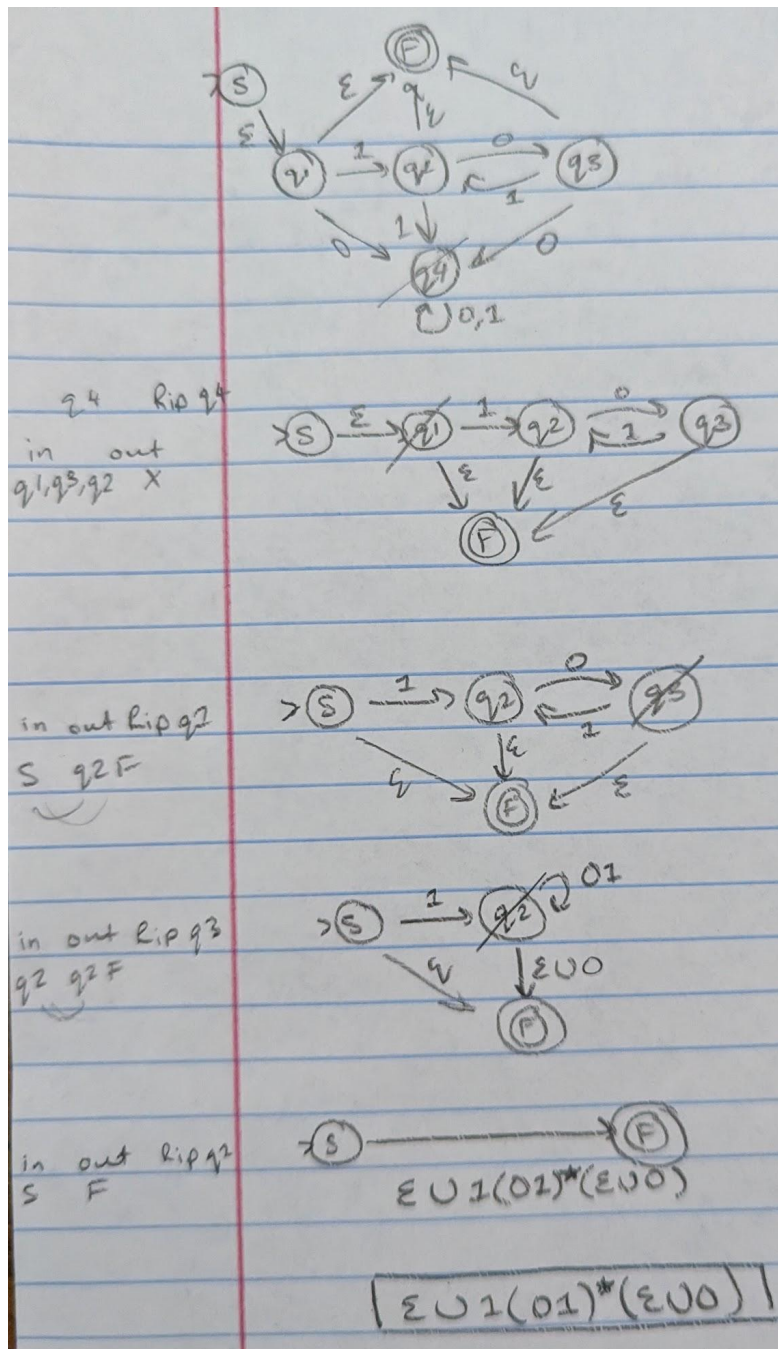 F
S
ε
ε
ε
ε
q1
1
q2
0
1
q3
0
1
0
q4
0,1
q4 Rip q4
in out
q1,q3,q2 X
S
ε
q1
1
q2
0
1
q3
ε
ε
ε
F
in out Rip q1
S q2 F
S
1
q2
0
1
q3
ε
ε
ε
F
in out Rip q3
q2 q2 F
S
1
q2
01
ε
ε∪0
F
in out Rip q2
S F
S
F
ε∪1(01)*(ε∪0)
ε∪1(01)*(ε∪0)